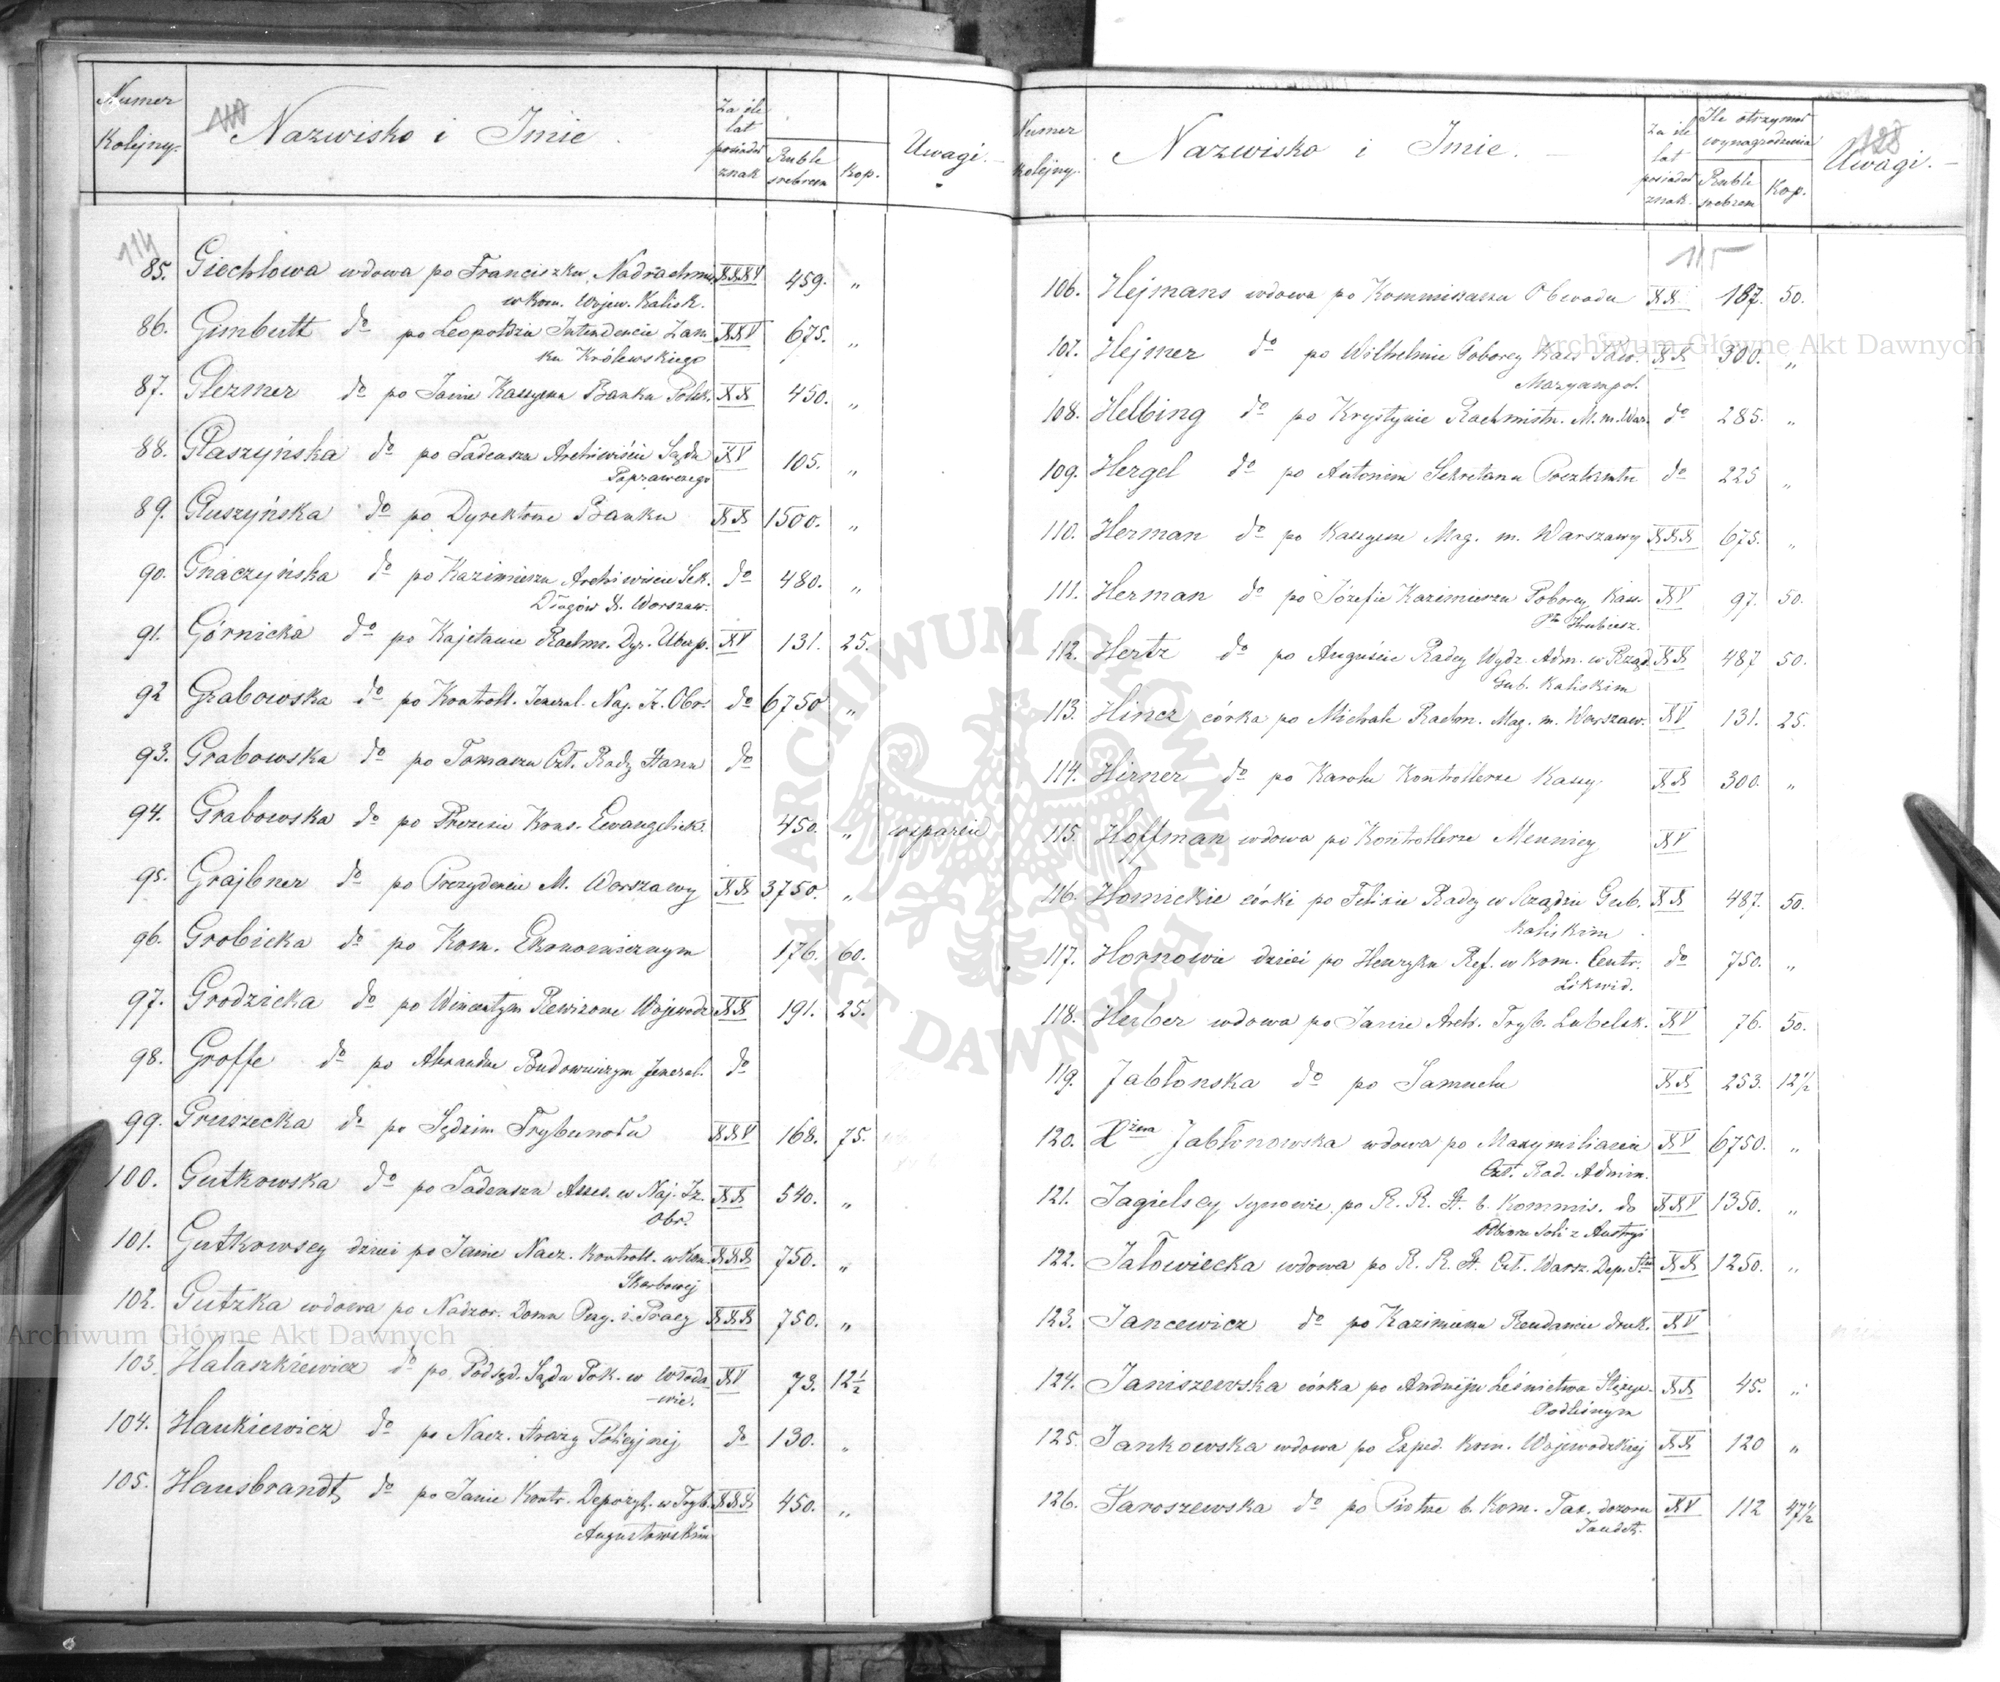 Numer Kolejny.
Nazwisko i Imie.
Za ile lat posiadał znak
Ruble srebrem
Kop.
Uwagi.
114
85. Giechlowa wdowa po Franciszku Nadrachmis. XXXV 459. „
w Kom. Wojew. Kalisk.
86. Gimbutt do po Leopoldzie Intendencie Zam- XXV 675. „
ku Królewskiego
87. Glezmer do po Janie Kassyerze Banku Polsk. XX 450. „
88. Głaszyńska do po Tadeuszu Archiwiście Sądu XV 105. „
Poprawczego
89. Głuszyńska do po Dyrektorze Banku XX 1500. „
90. Gnaczyńska do po Kazimierzu Archiwiście Sek. do 480. „
Długów K. Warszaw.
91. Górnicka do po Kajetanie Rachm. Dyr. Ubezp. XV 131. 25.
92 Grabowska do po Kontroll. Jeneral. Naj. Iz. Obr. do 6750 „
93. Grabowska do po Tomaszu Czł. Rady Stanu do
94. Grabowska do po Prezesie Kons. Ewangelick. 450. „ wsparcie
95. Grajbner do po Prezydencie M. Warszawy XX 3750. „
96. Grobicka do po Kom. Ekonomicznym 176. 60.
97. Grodzicka do po Wincentym Rewizorze Wojewodz XX 191. 25.
98. Groffe do po Alexandrze Budowniczym Jeneral. do
99. Gruszecka do po Sędzim Trybunału XXV 168. 75.
100. Gutkowska do po Tadeuszu Asses. w Naj. Iz. XX 540. „
Obr.
101. Gutkowscy dzieci po Janie Nacz. Kontroll. w Kom. XXX 750. „
Skarbowej
102. Gutzka wdowa po Nadzor. Domu Przy. i Pracy XXX 750. „
103. Hałaszkiewicz do po Podsęd. Sądu Pok. w Włoda- XV 73. 12½
-wie.
104. Hankiewicz do po Nacz. Straży Policyjnej do 130. „
105. Hausbrandt do po Janie Kontr. Depozyt. w Tryb. XXX 450. „
Augustowskim
Numer kolejny.
Nazwisko i Imie.
Za ile lat posiadał znak.
Ile otrzymał wynagrodzenia
Ruble srebrem
Kop.
Uwagi.
115
106. Hejmans wdowa po Kommissarzu Obwodu XX 187. 50.
107. Hejmer do po Wilhelmie Poborcy Kass Pow. XX 300. „
Maryampol.
108. Helbing do po Krystynie Rachmistr. M. m. War. do 285. „
109. Hergel do po Antonim Sekretarzu Pocztamtu do 225 „
110. Herman do po Kassyerze Mag. m. Warszawy XXX 675. „
111. Herman do po Józefie Kazimierzu Poborcy Kass. XV 97. 50.
Ptu Hrubiesz.
112. Hertz do po Auguście Radcy Wydz. Adm. w Rząd. XX 487 50.
Gub. Kaliskim
113. Hincz córka po Michale Rachm. Mag. m. Warszaw. XV 131. 25.
114. Hirner do po Karolu Kontrollerze Kassy XX 300. „
115. Hoffman wdowa po Kontrollerze Mennicy XV
116. Homickie córki po Felixie Radcy w Rządzie Gub. XX 487. 50.
Kaliskim
117. Hornowie dzieci po Henryku Ref. w Kom. Centr. do 750. „
Likwid.
118. Huber wdowa po Janie Arch. Tryb. Lubelsk. XV 76. 50.
119. Jabłonska do po Samuelu XX 253. 12½
120. Xżna Jabłonowska wdowa po Maxymilianie XV 6750. „
Czł. Rad. Admin.
121. Jagielscy synowie po R. R. St. b. Kommis. do XXV 1350. „
Odbioru Soli z Austryi
122. Jałowiecka wdowa po R. R. St. Czł. Warsz. Dep. Stu XX 1250. „
123. Jancewicz do po Kazimierzu Rendancie druk. XV
124. Janiszewska córka po Andrzeju Leśnictwa Stężyc. XX 45. „
Podleśnym
125. Jankowska wdowa po Exped. Kom. Wojewodzkiej XX 120 „
126. Jaroszewska do po Piotrze b. Kom. Tax. dozoru XV 112 47½
Tandet.
Archiwum Główne Akt Dawnych
Archiwum Główne Akt Dawnych
ARCHIWUM GŁÓWNE AKT DAWNYCH